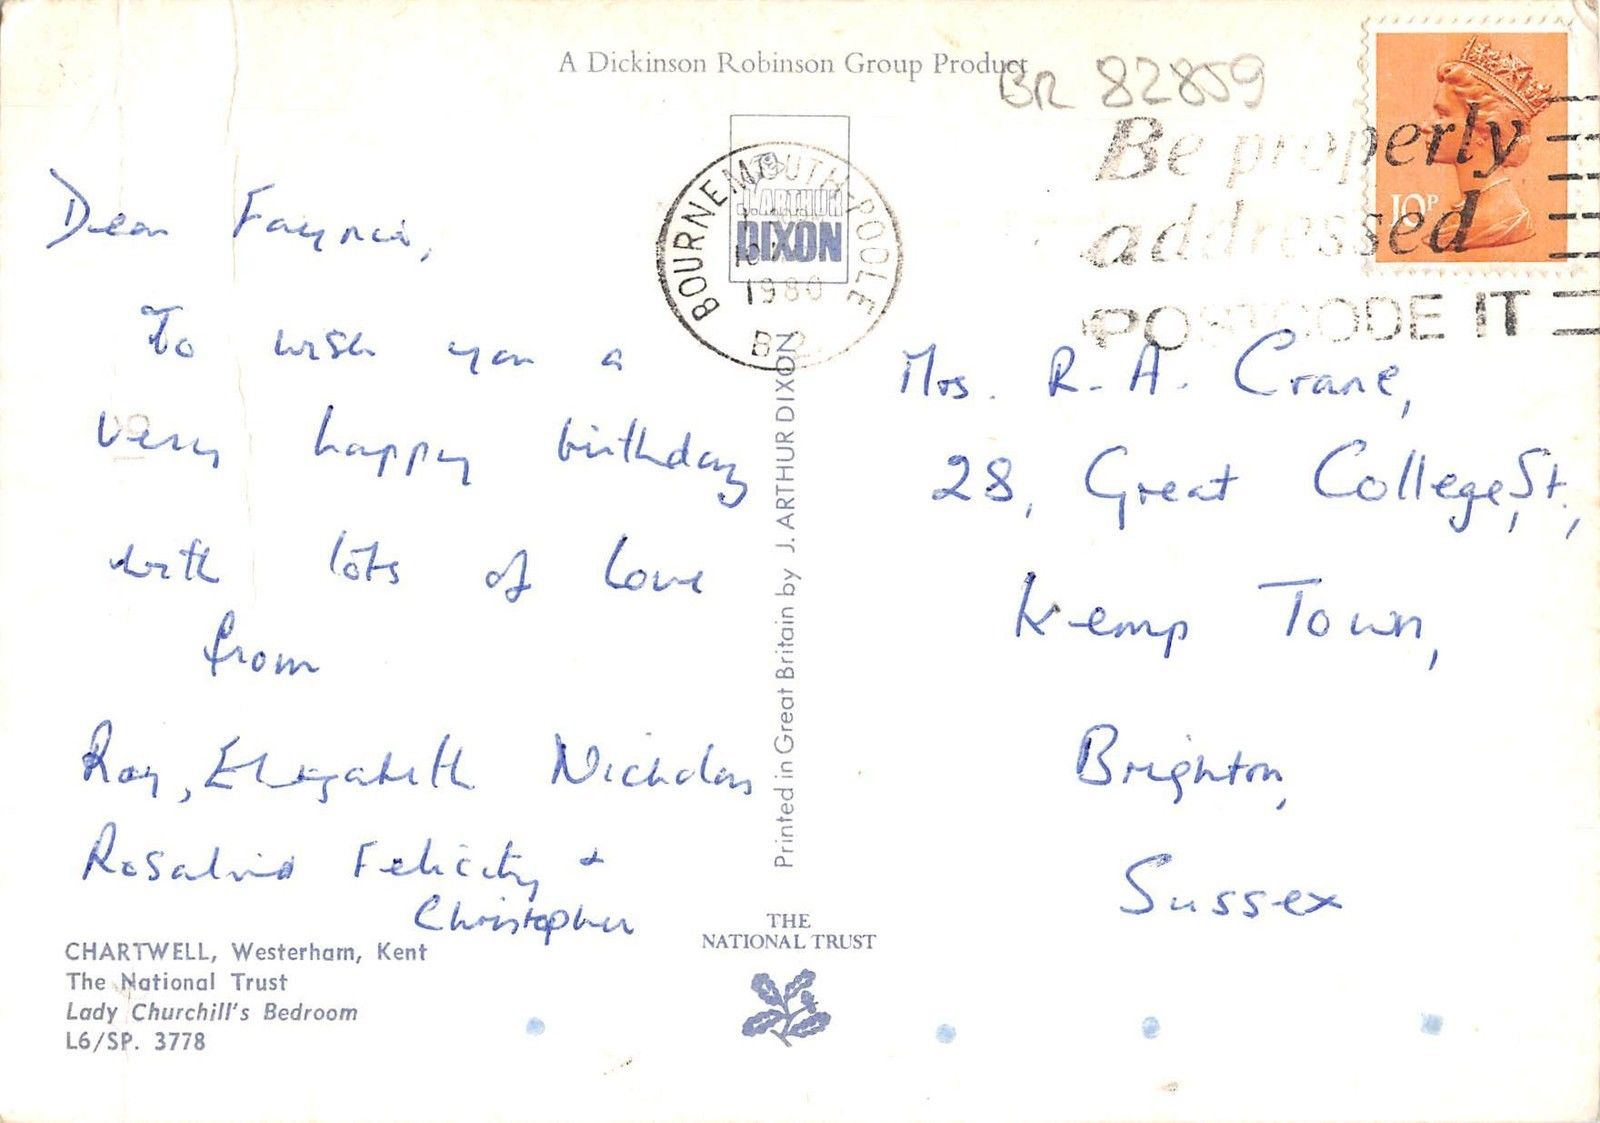 A Dickinson Robinson Group Product
BR 82859
Be properly
addressed
POSTCODE IT
10P
BOURNEMOUTH-POOLE
1980
J. ARTHUR
DIXON
Dear
To wish you a
very happy birthday
with lots of love
from
Ray, Elizabeth Nicholas
Rosalind Felicity +
Christopher
CHARTWELL, Westerham, Kent
The National Trust
Lady Churchill's Bedroom
L6/SP. 3778
Printed in Great Britain by J. ARTHUR DIXON
THE
NATIONAL TRUST
Mrs. R. A. Crane,
28, Great College, St.,
Kemp Town,
Brighton,
Sussex